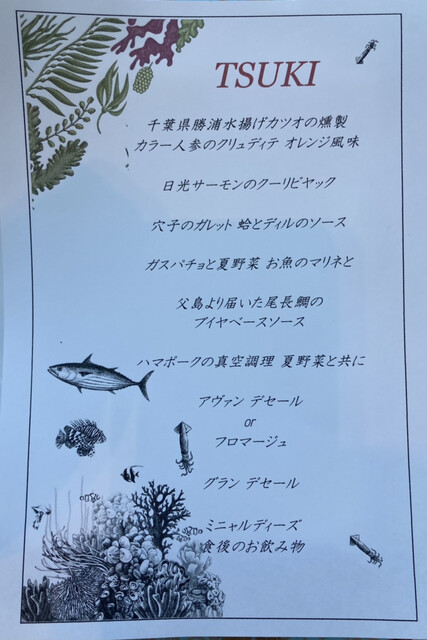 TSUKI
千葉県勝浦水揚げカツオの燻製
カラー人参のクリュディテ オレンジ風味
日光サーモンのクーリビヤック
穴子のガレット 蛤とディルのソース
ガスパチョと夏野菜 お魚のマリネと
父島より届いた尾長鯛の
ブイヤベースソース
ハマポークの真空調理 夏野菜と共に
アヴァン デセール
or
フロマージュ
グラン デセール
ミニャルディーズ
食後のお飲み物